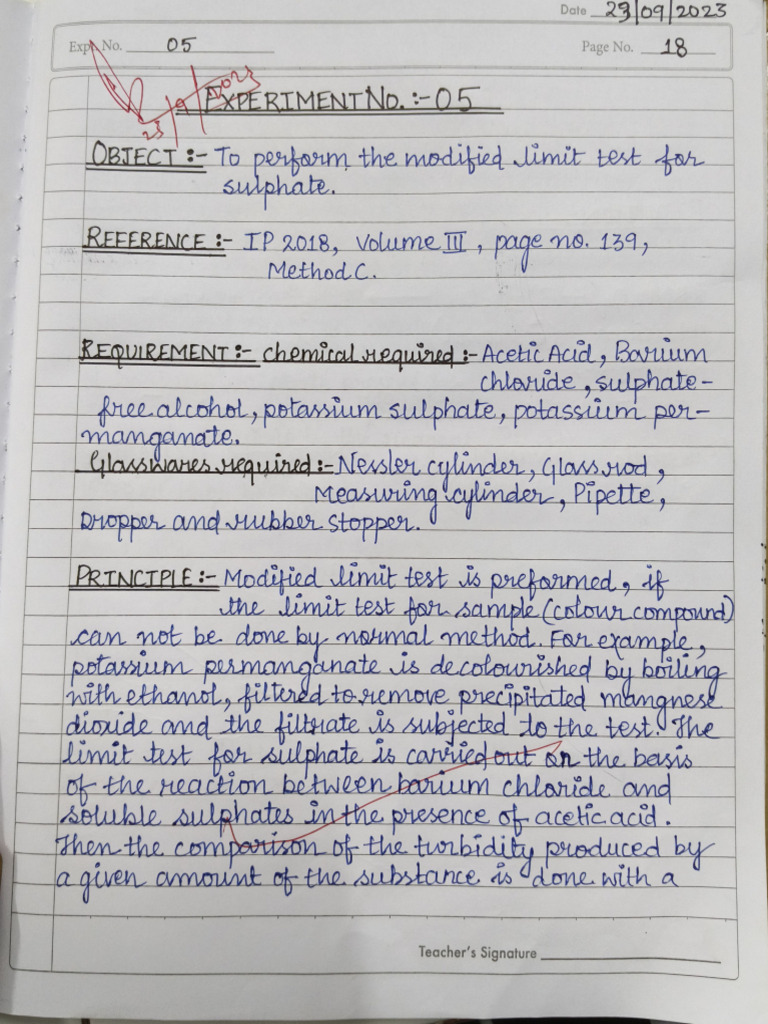 Date 23/09/2023
Expt. No. 05
Page No. 18
23/9/2023
EXPERIMENT NO. :- 05
OBJECT :- To perform the modified limit test for
sulphate.
REFERENCE :- IP 2018, Volume III, page no. 139,
Method C.
REQUIREMENT :- chemical required :- Acetic Acid, Barium
chloride, sulphate-
free alcohol, potassium sulphate, potassium per-
manganate.
Glasswares required :- Nessler cylinder, Glass rod,
Measuring cylinder, Pipette,
Dropper and rubber stopper.
PRINCIPLE :- Modified limit test is preformed, if
the limit test for sample (colour compound)
can not be done by normal method. For example,
potassium permanganate is decolourished by boiling
with ethanol, filtered to remove precipitated mangnese
dioxide and the filtrate is subjected to the test. The
limit test for sulphate is carried out on the basis
of the reaction between barium chloride and
soluble sulphates in the presence of acetic acid.
Then the comparison of the turbidity produced by
a given amount of the substance is done with a
Teacher's Signature